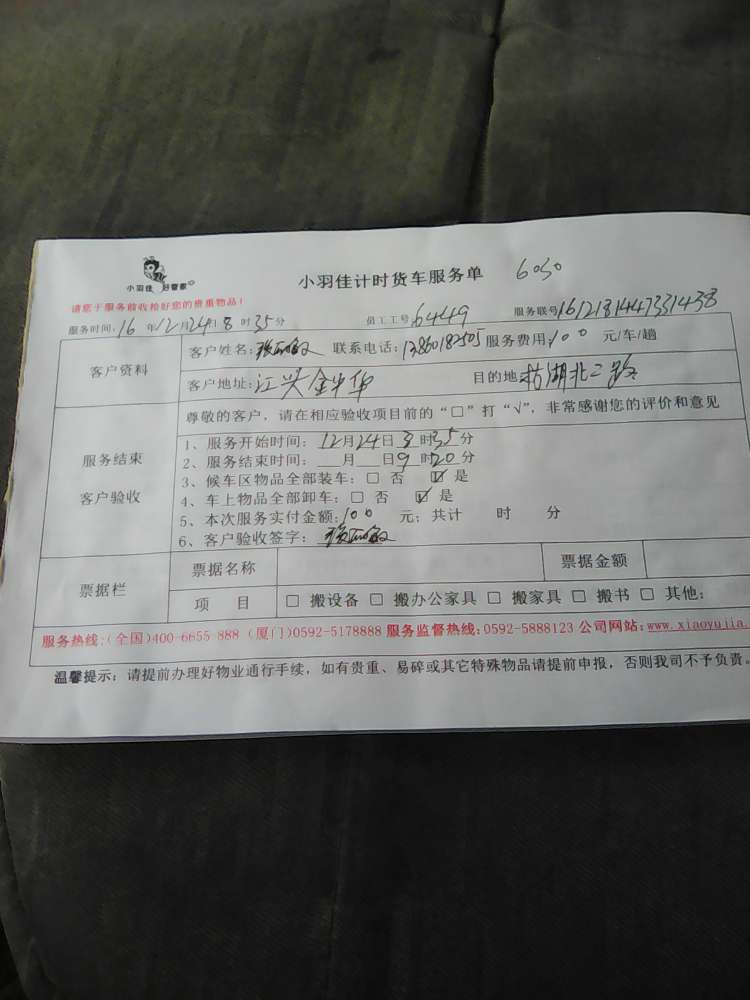 小羽佳 好管家
小羽佳计时货车服务单 6030
请您于服务前收拾好您的贵重物品!
服务时间:16年12月24日8时35分 员工工号6449 服务联号1612181447331438
客户资料
客户姓名: 联系电话:13860182505 服务费用:100元/车/趟
客户地址:江兴金中华 目的地:枋湖北二路
服务结束
客户验收
尊敬的客户,请在相应验收项目前的“□”打“√”,非常感谢您的评价和意见
1、服务开始时间:12月24日 时35分
2、服务结束时间: 月 日9时20分
3、候车区物品全部装车:□ 否 ☑ 是
4、车上物品全部卸车:□ 否 ☑ 是
5、本次服务实付金额:100元;共计 时 分
6、客户验收签字:
票据栏
票据名称 票据金额
项 目 □ 搬设备 □ 搬办公家具 □ 搬家具 □ 搬书 □ 其他:
服务热线:(全国)400-6655-888 (厦门)0592-5178888 服务监督热线:0592-5888123 公司网站:www.xiaoyujia.
温馨提示:请提前办理好物业通行手续,如有贵重、易碎或其它特殊物品请提前申报,否则我司不予负责。